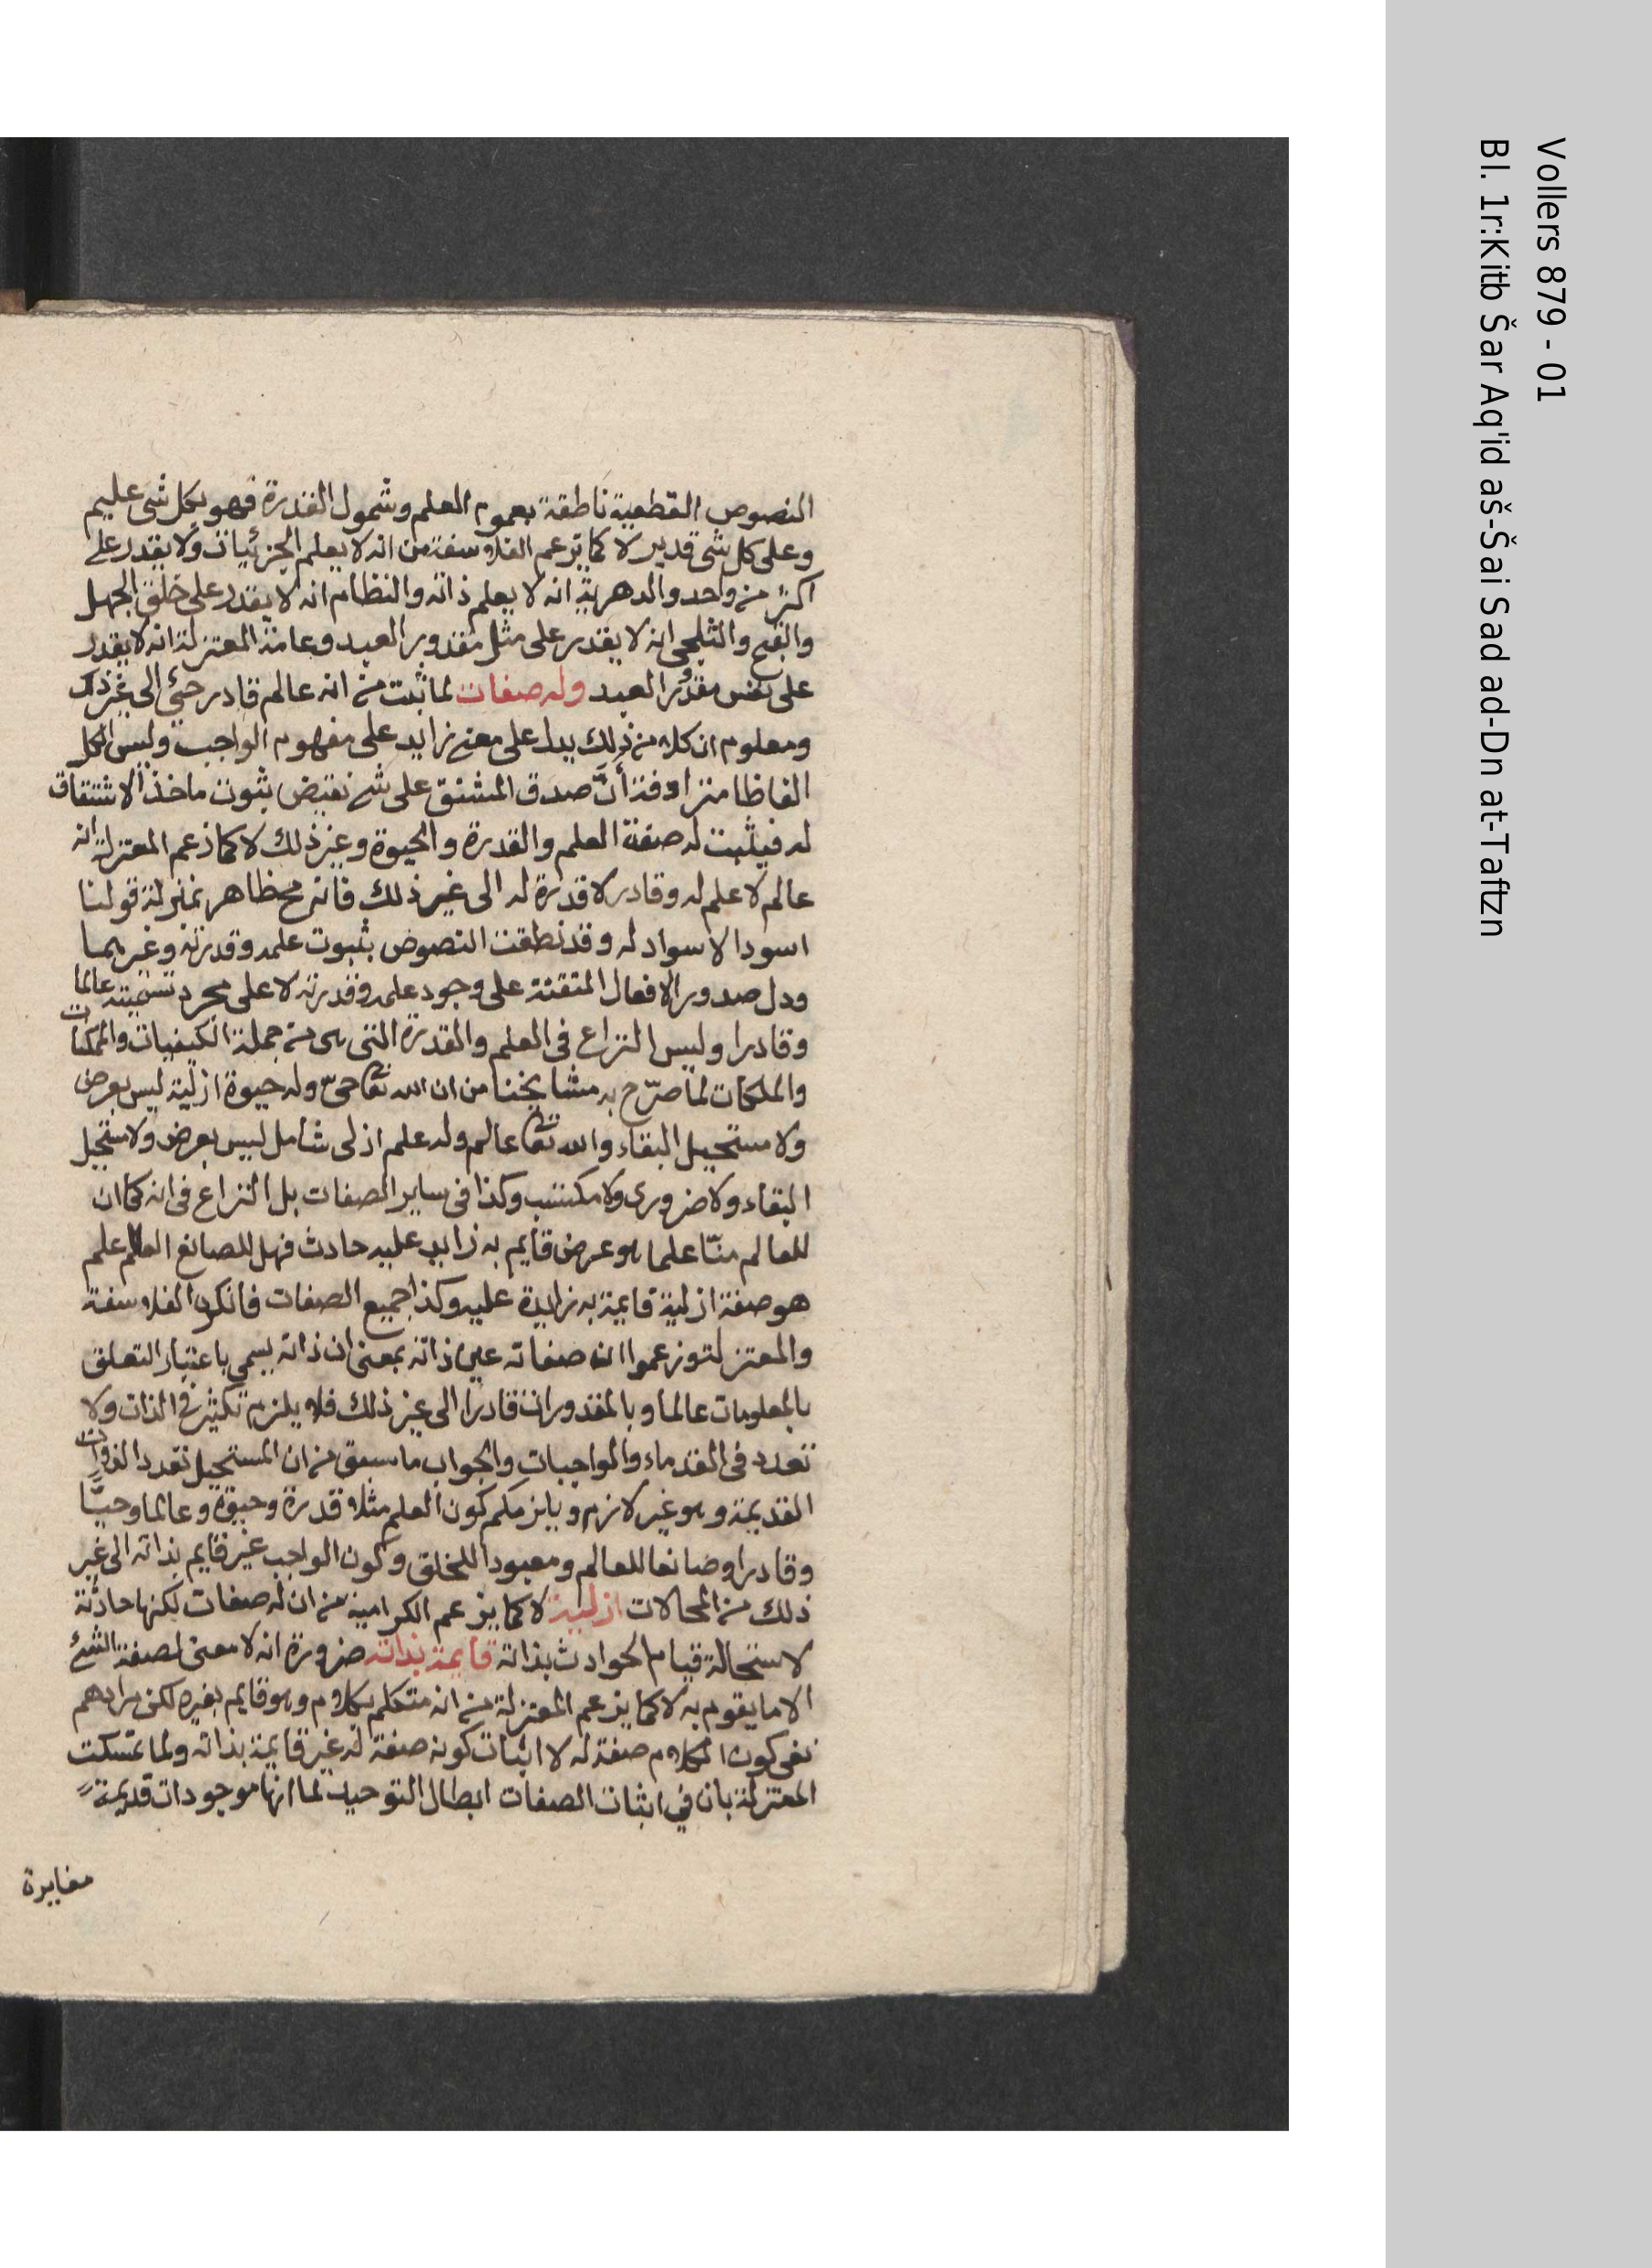 النصوص القطعية ناطقة بعموم العلم وشمول القدرة فهو بكل شئ عليم
وعلى كل شئ قدير لا كما يزعم الفلاسفة من انه لا يعلم الجزئيات ولا يقدر على
اكثر من واحد والدهرية انه لا يعلم ذاته والنظام انه لا يقدر على خلق الجهل
والقبح والثلجى انه لا يقدر على مثل مقدور العبد وعامة المعتزلة انه لا يقدر
على نفس مقدور العبد وله صفات لما ثبت من انه عالم قادر حئ الى غير ذلك
ومعلوم ان كلا من ذلك يدل على معنى زايد على مفهوم الواجب وليس الكل
الفاظا مترادفة أنّ صدق المشتق على شئ تقيض بثوت ماخذ الاشتقاق
له فيثبت له صفة العلم والقدرة والحيوة وغير ذلك لا كما زعم المعتزلة انه
عالم لا علم له وقادر لا قدرة له الى غير ذلك فانه مح ظاهر بمنزلة قولنا
اسود الا سواد له وقد نطقت النصوص بثبوت علمه وقدرته وغيرهما
ودل صدور الافعال المتقنة على وجود علمه وقدرته لا على مجرد تسميته عالما
وقادرا وليس النزاع فى العلم والقدرة التى هى من جملة الكيفيات والممكنات
والملكات لما صرّح به مشايخنا من ان الله تعا حىّ وله حيوة ازليّة ليس بعرض
ولا مستحيل البقاء والله تعا عالم وله علم ازلى شامل ليس بعرض ولا مستحيل
البقاء ولا ضرورى ولا مكتسب وكذا فى ساير الصفات بل النزاع فى انه كما ان
للعالم منّا علما هو عرض قايم به زايد عليه حادث فهل للصانع العالم علم
هو صفة ازلية قايمة به زايدة عليه وكذا جميع الصفات فانكره الفلاسفة
والمعتزلة وزعموا ان صفاته عين ذاته بمعنى ان ذاته يسمى باعتبار التعلق
بالمعلومات عالما وبالمقدورات قادرا الى غير ذلك فلا يلزم تكثير فى الذات ولا
تعدد فى القدماء والواجبات والجواب ما سبق من ان المستحيل تعدد الذوات
القديمة وهو غير لازم ويلزمكم كون العلم مثلا قدرة وحيوة وعالما وحيّا
وقادرا وصانعا للعالم ومعبودا للخلق وكون الواجب غير قايم بذاته الى غير
ذلك من المحالات ازلية لا كما يزعم الكرامية من ان له صفات لكنها حادثة
لاستحالة قيام الحوادث بذاته قايمة بذاته ضرورة انه لا معنى لصفة الشئ
الا ما يقوم به لا كما يزعم المعتزلة من انه متكلم بكلام وهو قايم بغيره لكن مرادهم
نفى كون الكلام صفة له لا اثبات كونه صفة له غير قايمة بذاته ولما تمسكت
المعتزلة بان في اثبات الصفات ابطال التوحيد لما انها موجودات قديمة
مغايرة
Vollers 879 - 01
Bl. 1r:Kitb Šar Aq'id aš-Šai Sad ad-Dn at-Taftzn